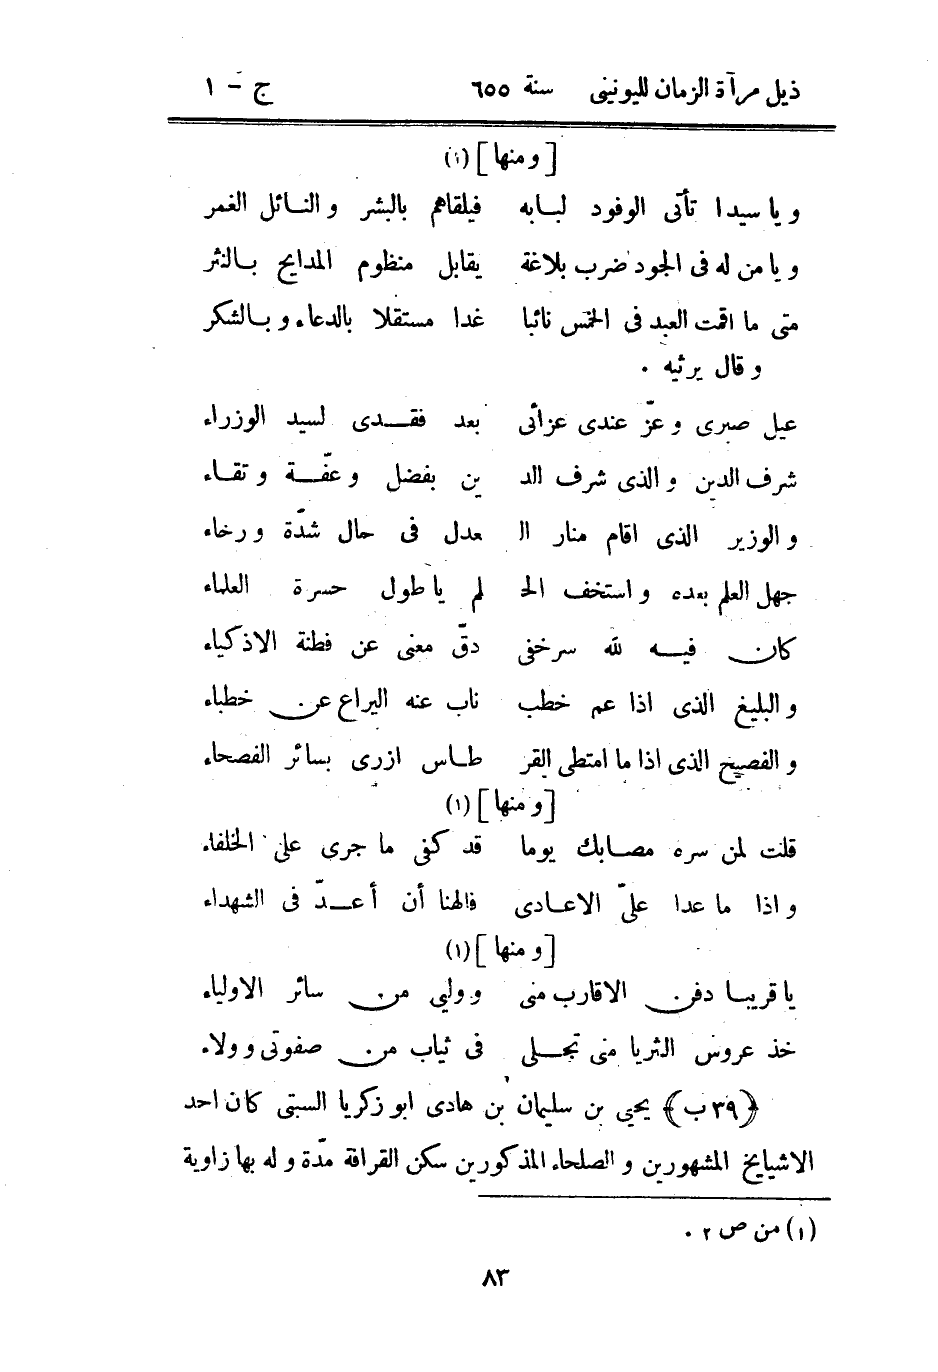 ذيل مرآة الزمان لليونينى سنة ٦٥٥ ج – ١
[ و منها ] (١)
و يا سيدا تأتى الوفود لبابه فيلقاهم بالبشر و النائل الغمر
و يا من له فى الجود ضرب بلاغة يقابل منظوم المدايح بالنثر
متى ما اقمت العبد فى الخمس نائبا غدا مستقلا بالدعاء و بالشكر
و قال يرثيه .
عيل صبرى و عزّ عندى عزائى بعد فقدى لسيد الوزراء
شرف الدين و الذى شرف الد ين بفضل و عفّة و تقاء
و الوزير الذى اقام منار ال عدل فى حال شدّة و رخاء
جهل العلم بعده و استخف الح لم يا طول حسرة العلماء
كان فيه لله سر خفى دقّ معنى عن فطنة الاذكياء
و البليغ الذى اذا عم خطب ناب عنه اليراع عن خطباء
و الفصيح الذى اذا ما امتطى القر طاس ازرى بسائر الفصحاء
[ و منها ] (١)
قلت لمن سره مصابك يوما قد كفى ما جرى على الخلفاء
و اذا ما عدا علىّ الاعادى فالهنا أن أعدّ فى الشهداء
[ و منها ] (١)
يا قريبا دفن الاقارب منى و وليي من سائر الاولياء
خذ عروس الثريا منى تجلى فى ثياب من صفوتى و ولاء
﴿٣٩ ب﴾ يحيى بن سليمان بن هادى ابو زكريا السبتى كان احد
الاشيايخ المشهورين و الصلحاء المذكورين سكن القرافة مدّة و له بها زاوية
(١) من ص ٢ .
٨٣